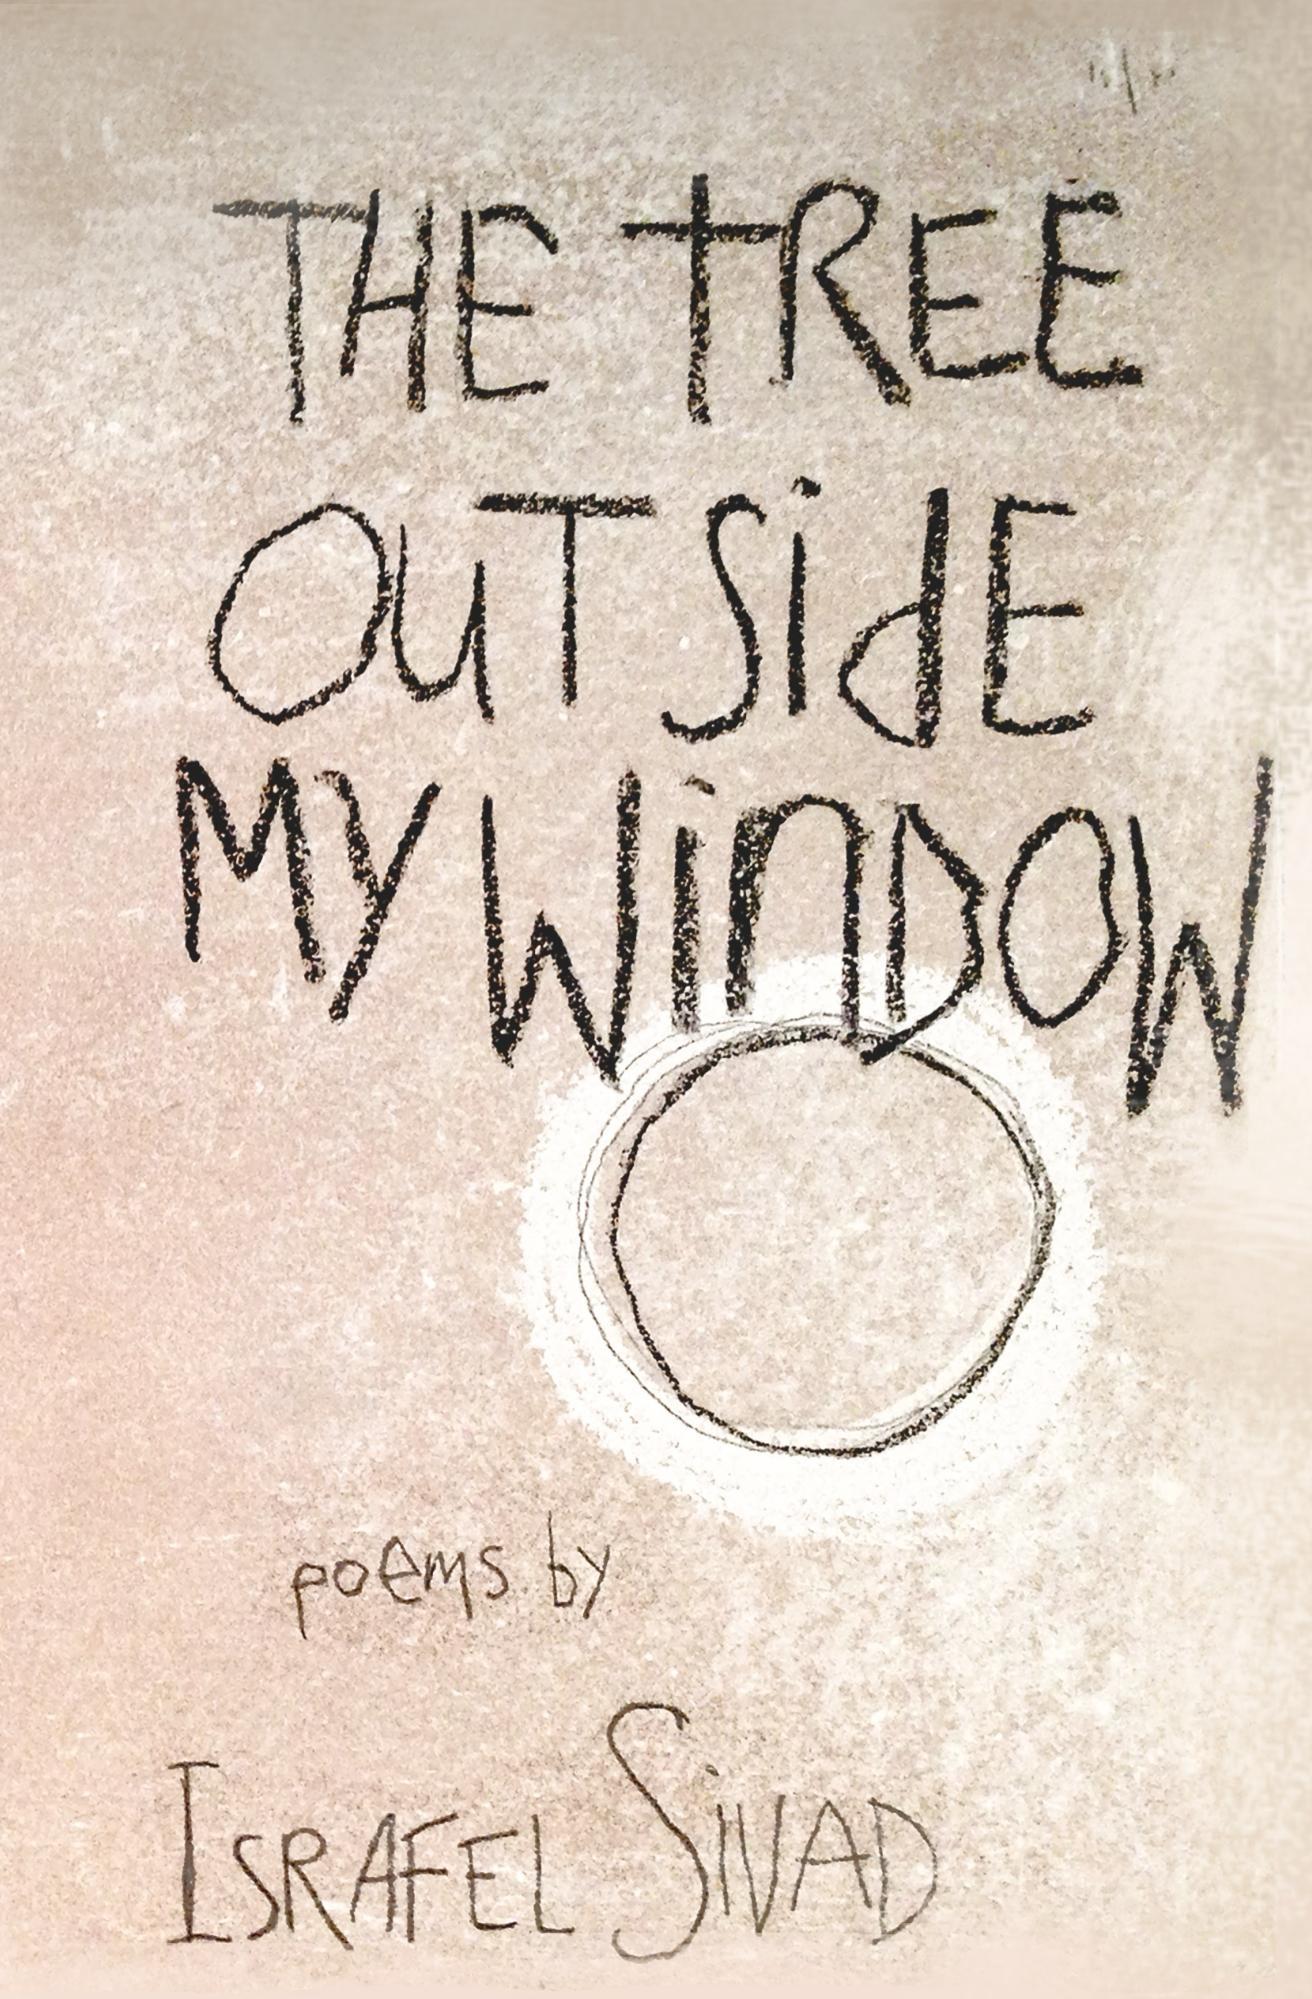 THE tREE
OuTSidE
MY WinDOW
poems by
ISRAFEL SiVAD